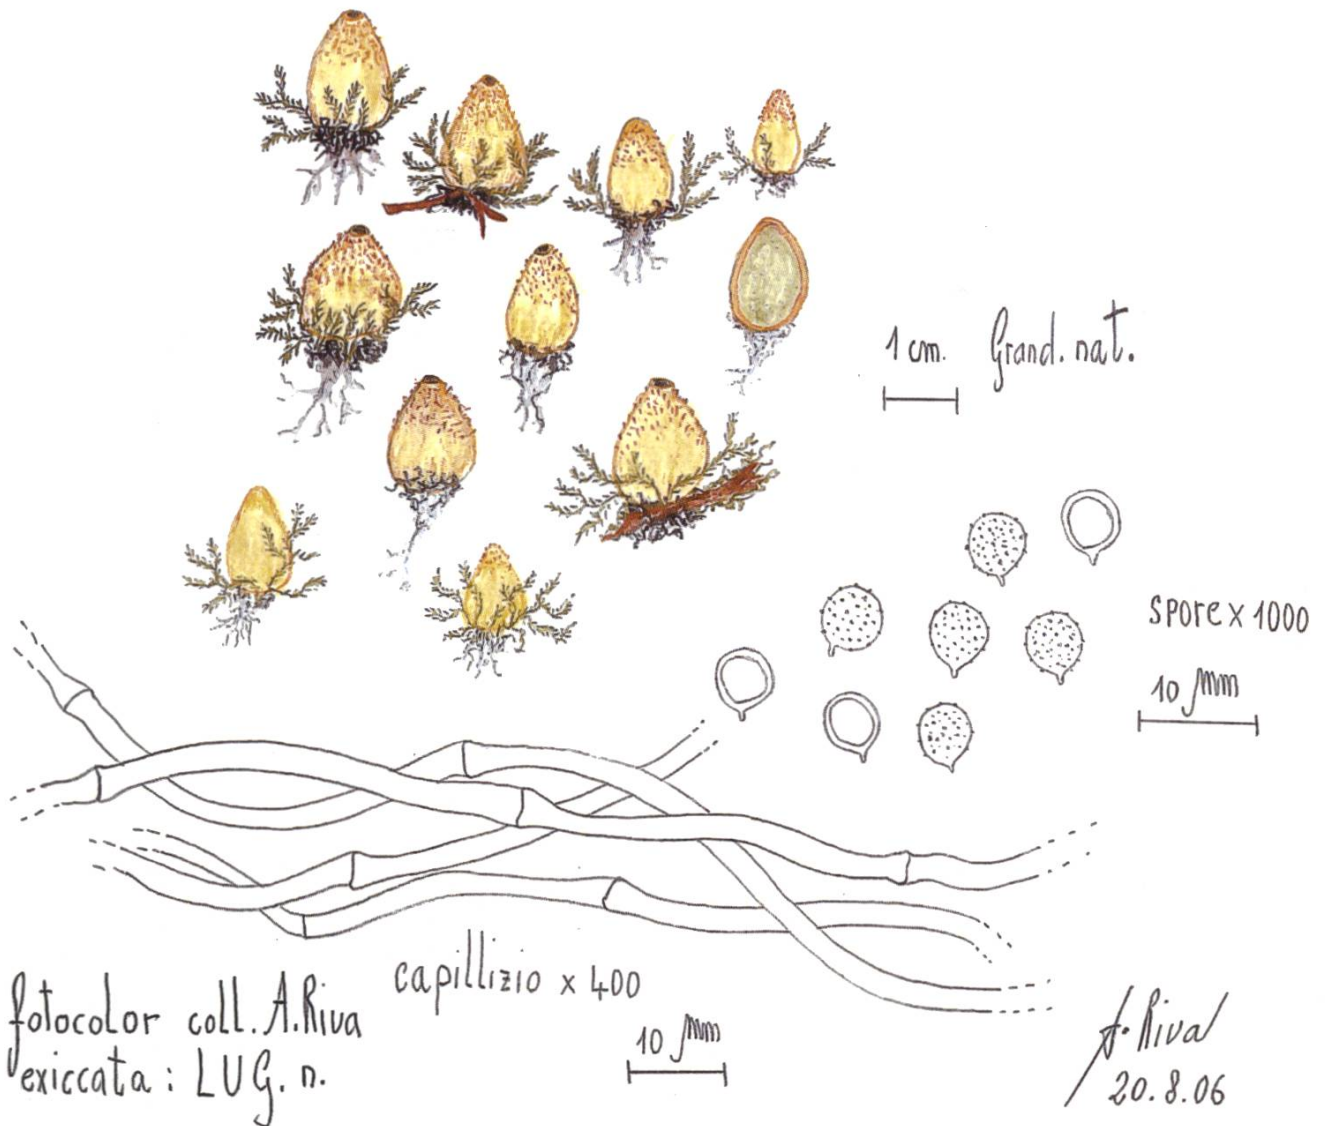 1 cm. Grand. nat.
spore x 1000
10 µm
capillizio x 400
10 µm
fotocolor coll. A. Riva
exiccata : LUG. n.
A. Riva
20.8.06